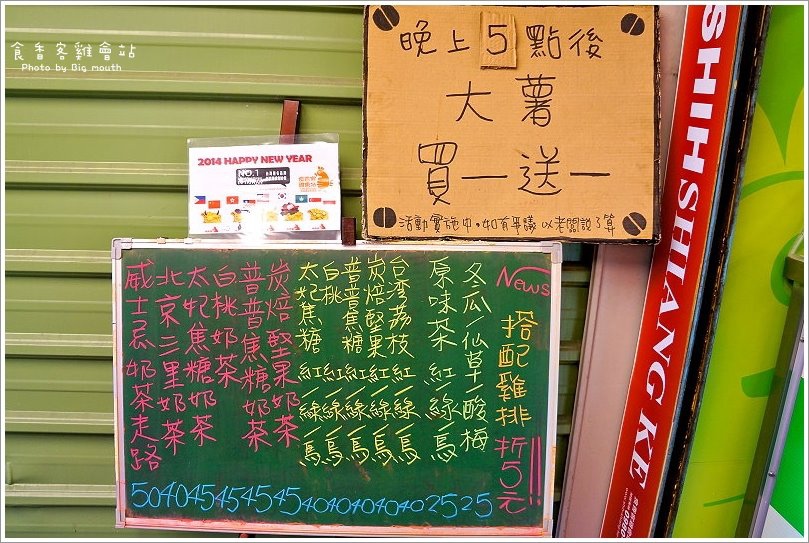 食香客雞會站
Photo by Big mouth
晚上5點後
大薯
買一送一
活動實施中。如有爭議 以老闆說了算
2014 HAPPY NEW YEAR
NO.1
SHIHSHIANG KE
NEWS 搭配雞排 折5元!!
冬瓜/仙草/酸梅 25
原味茶 紅/綠/烏 25
台湾荔枝 紅/綠/烏 40
炭焙堅果 紅/綠/烏 40
普普焦糖 紅/綠/烏 40
白桃 紅/綠/烏 40
太妃焦糖 紅/綠/烏 40
炭焙堅果奶茶 45
普普焦糖奶茶 45
白桃奶茶 45
太妃焦糖奶茶 45
北京三里奶茶 40
威士忌奶茶走路 50